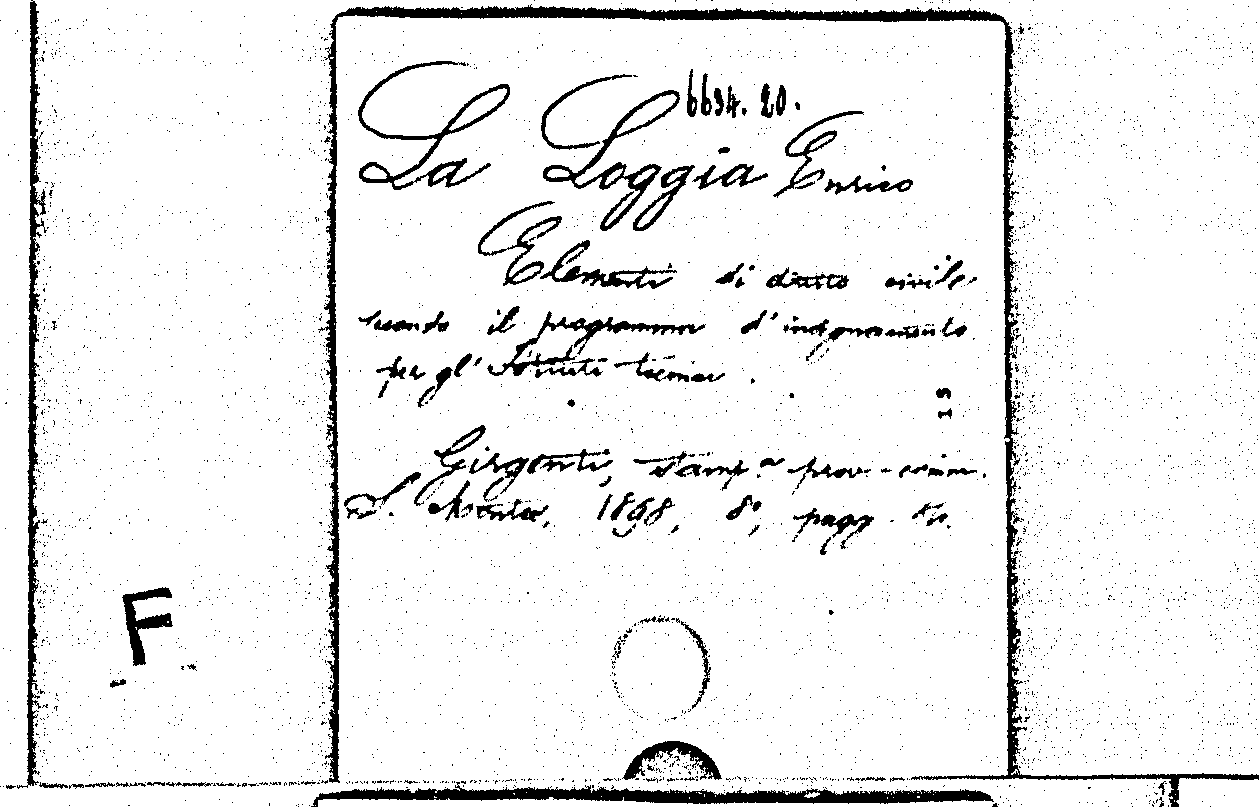 6694. 20.
La Loggia Enrico
Elementi di diritto civile
secondo il programma d'insegnamento
per gl'Istituti tecnici.
15
Girgenti, stamp.ª prov.-comm.
S. Montes, 1898, 8º, pagg.
F